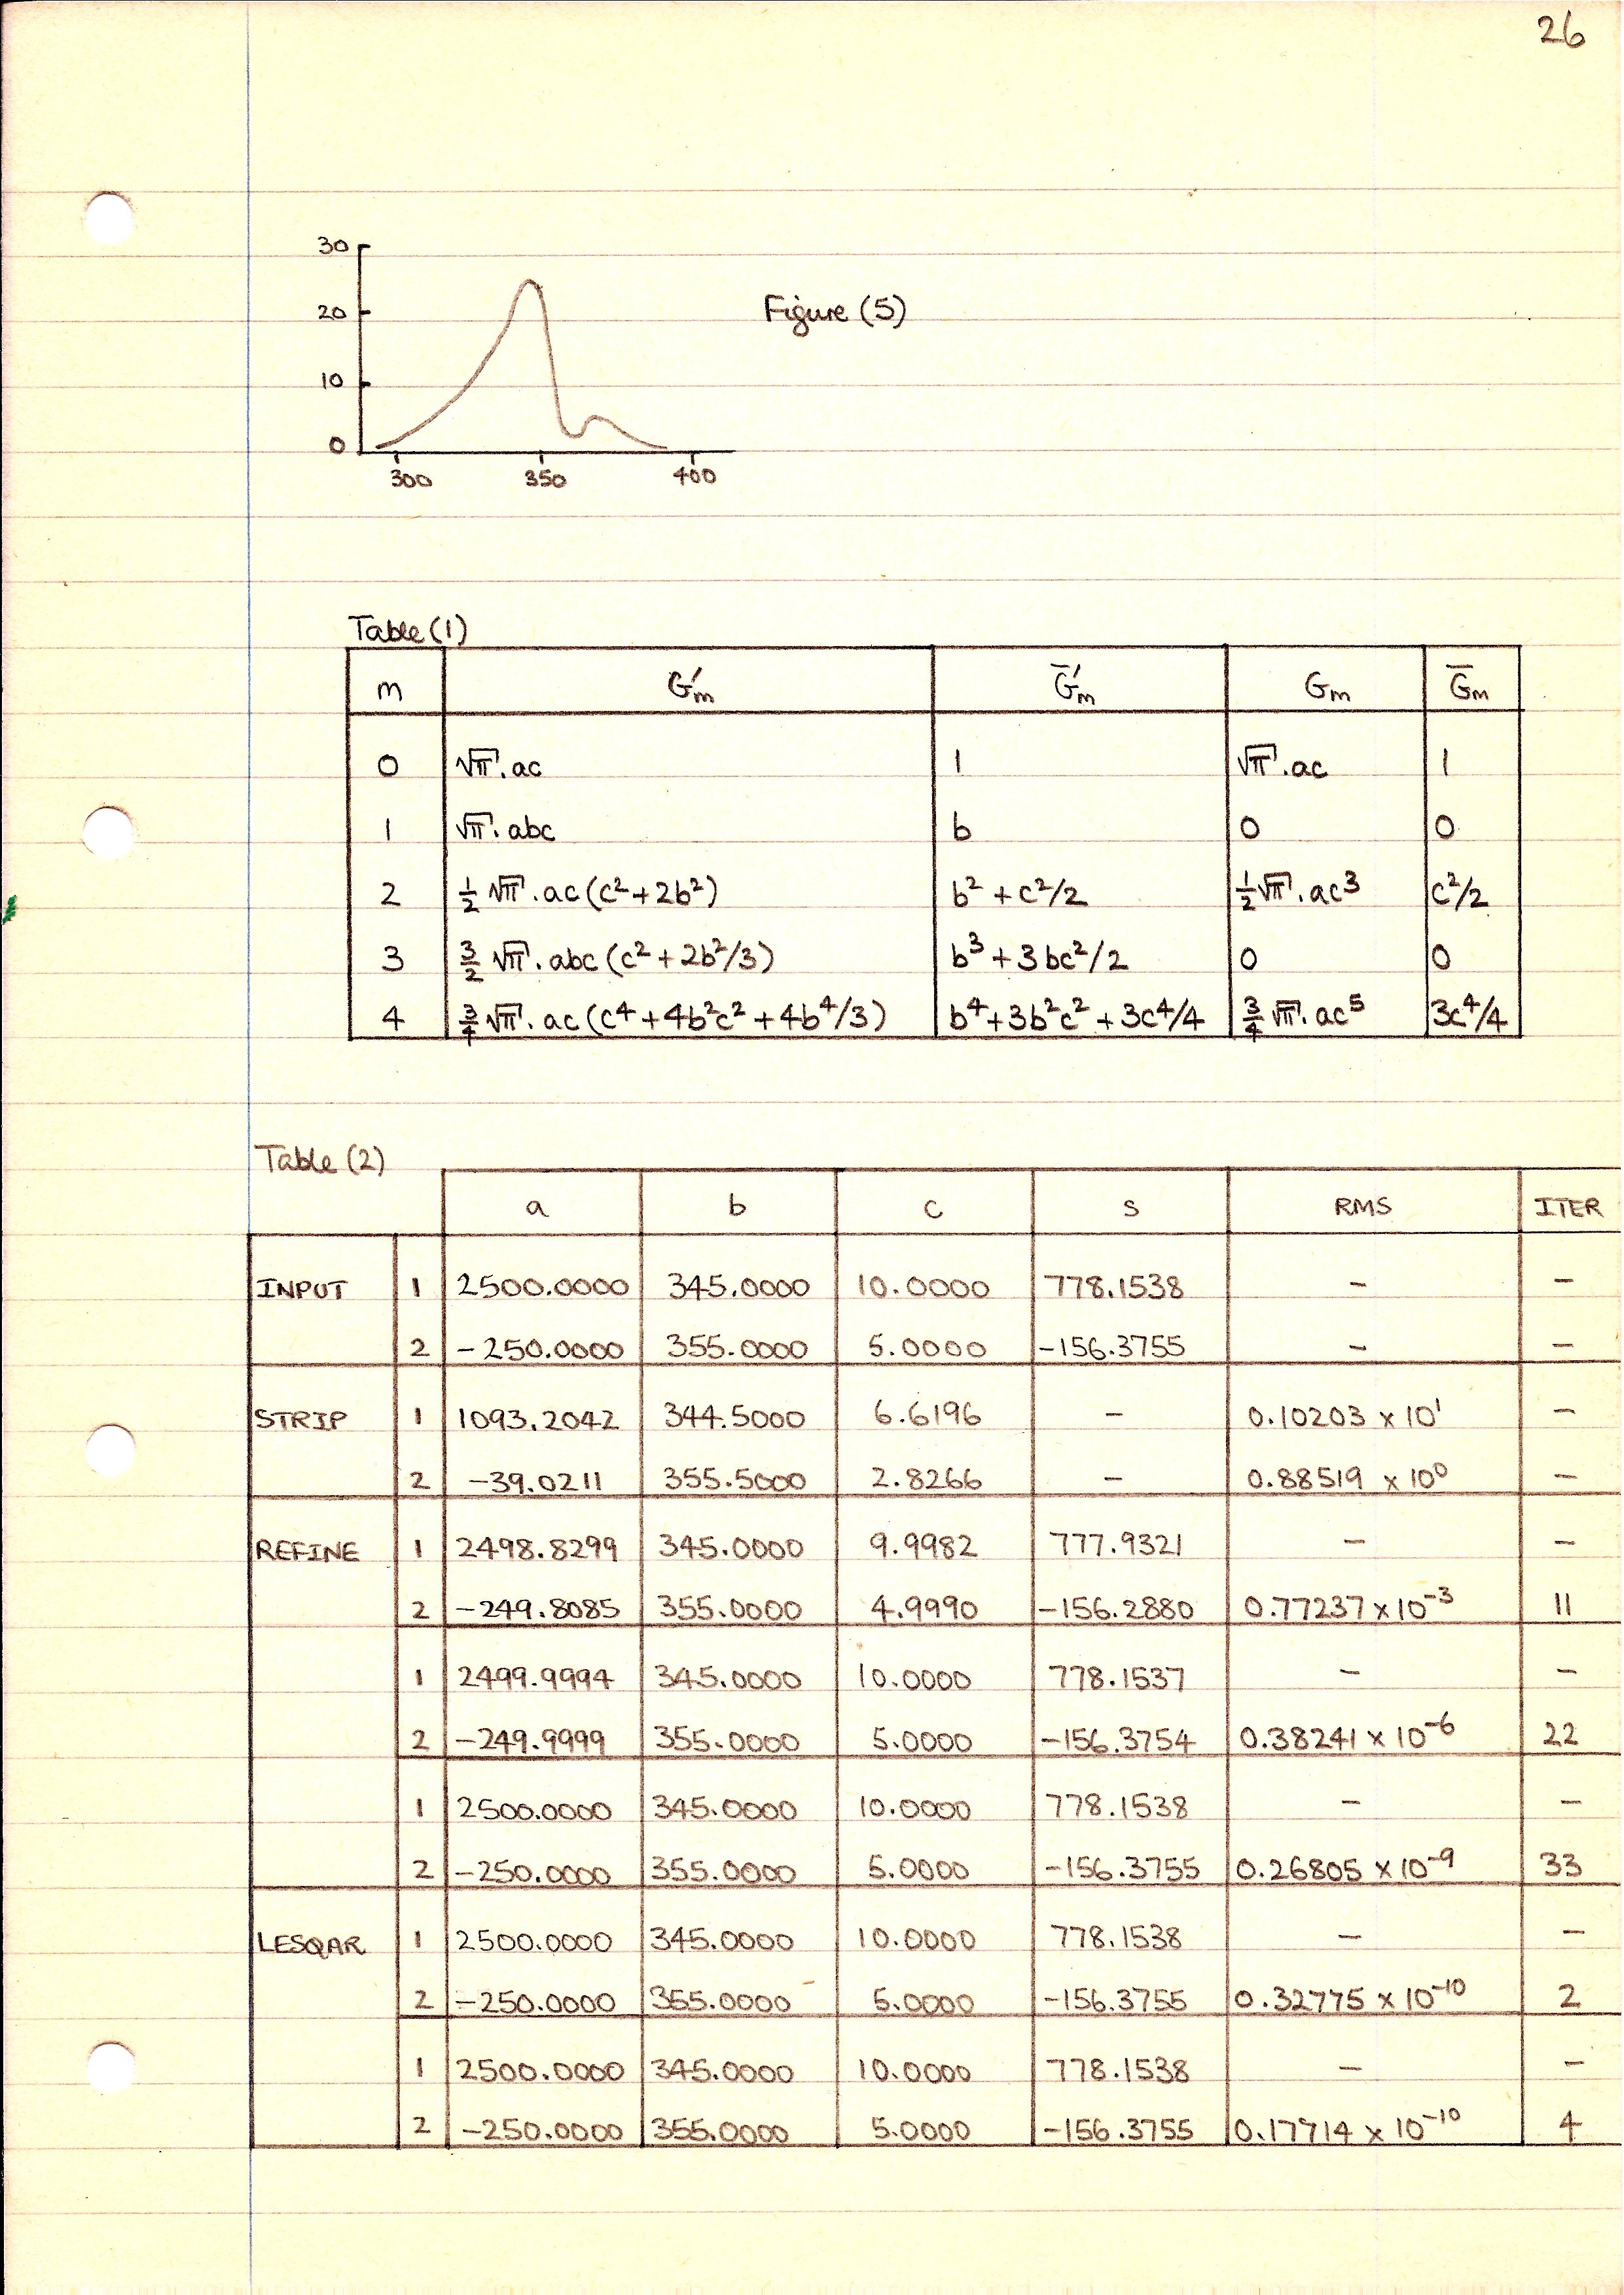 26
30
20
10
0
300 350 400
Figure (5)
Table (1)
m G′m G̅′m Gm G̅m
0 √π.ac 1 √π.ac 1
1 √π.abc b 0 0
2 ½√π.ac(c²+2b²) b²+c²/2 ½√π.ac³ c²/2
3 3/2 √π.abc(c²+2b²/3) b³+3bc²/2 0 0
4 ¾√π.ac(c⁴+4b²c²+4b⁴/3) b⁴+3b²c²+3c⁴/4 ¾√π.ac⁵ 3c⁴/4
Table (2)
a b c s RMS ITER
INPUT 1 2500.0000 345.0000 10.0000 778.1538 – –
2 -250.0000 355.0000 5.0000 -156.3755 – –
STRIP 1 1093.2042 344.5000 6.6196 – 0.10203 x 10¹ –
2 -39.0211 355.5000 2.8266 – 0.88519 x 10⁰ –
REFINE 1 2498.8299 345.0000 9.9982 777.9321 – –
2 -249.8085 355.0000 4.9990 -156.2880 0.77237 x 10⁻³ 11
1 2499.9994 345.0000 10.0000 778.1537 – –
2 -249.9999 355.0000 5.0000 -156.3754 0.38241 x 10⁻⁶ 22
1 2500.0000 345.0000 10.0000 778.1538 – –
2 -250.0000 355.0000 5.0000 -156.3755 0.26805 x 10⁻⁹ 33
LESQAR 1 2500.0000 345.0000 10.0000 778.1538 – –
2 -250.0000 355.0000 5.0000 -156.3755 0.32775 x 10⁻¹⁰ 2
1 2500.0000 345.0000 10.0000 778.1538 – –
2 -250.0000 355.0000 5.0000 -156.3755 0.17714 x 10⁻¹⁰ 4